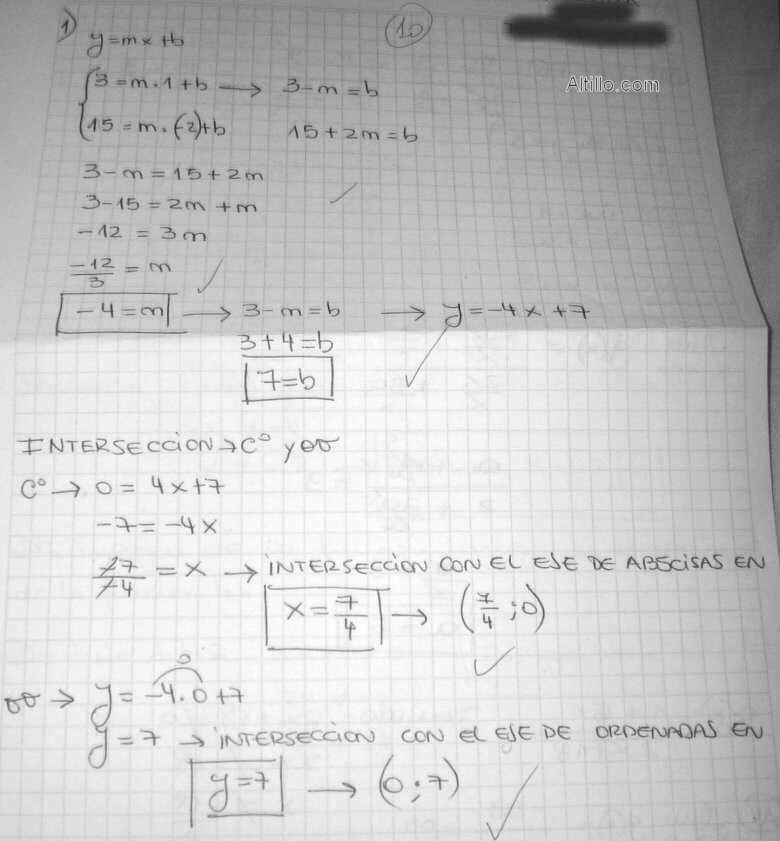 1) y=mx+b
10
Altillo.com
3=m.1+b → 3-m=b
15=m.(-2)+b 15+2m=b
3-m=15+2m
3-15=2m+m
-12=3m
-12/3=m
-4=m → 3-m=b → y=-4x+7
3+4=b
7=b
INTERSECCION→C° y OO
C°→ 0=4x+7
-7=-4x
-7/-4=x → INTERSECCION CON EL EJE DE ABSCISAS EN
x=7/4 → (7/4;0)
0
OO → y=-4.0+7
y=7 → INTERSECCION CON EL EJE DE ORDENADAS EN
y=7 → (0;7)